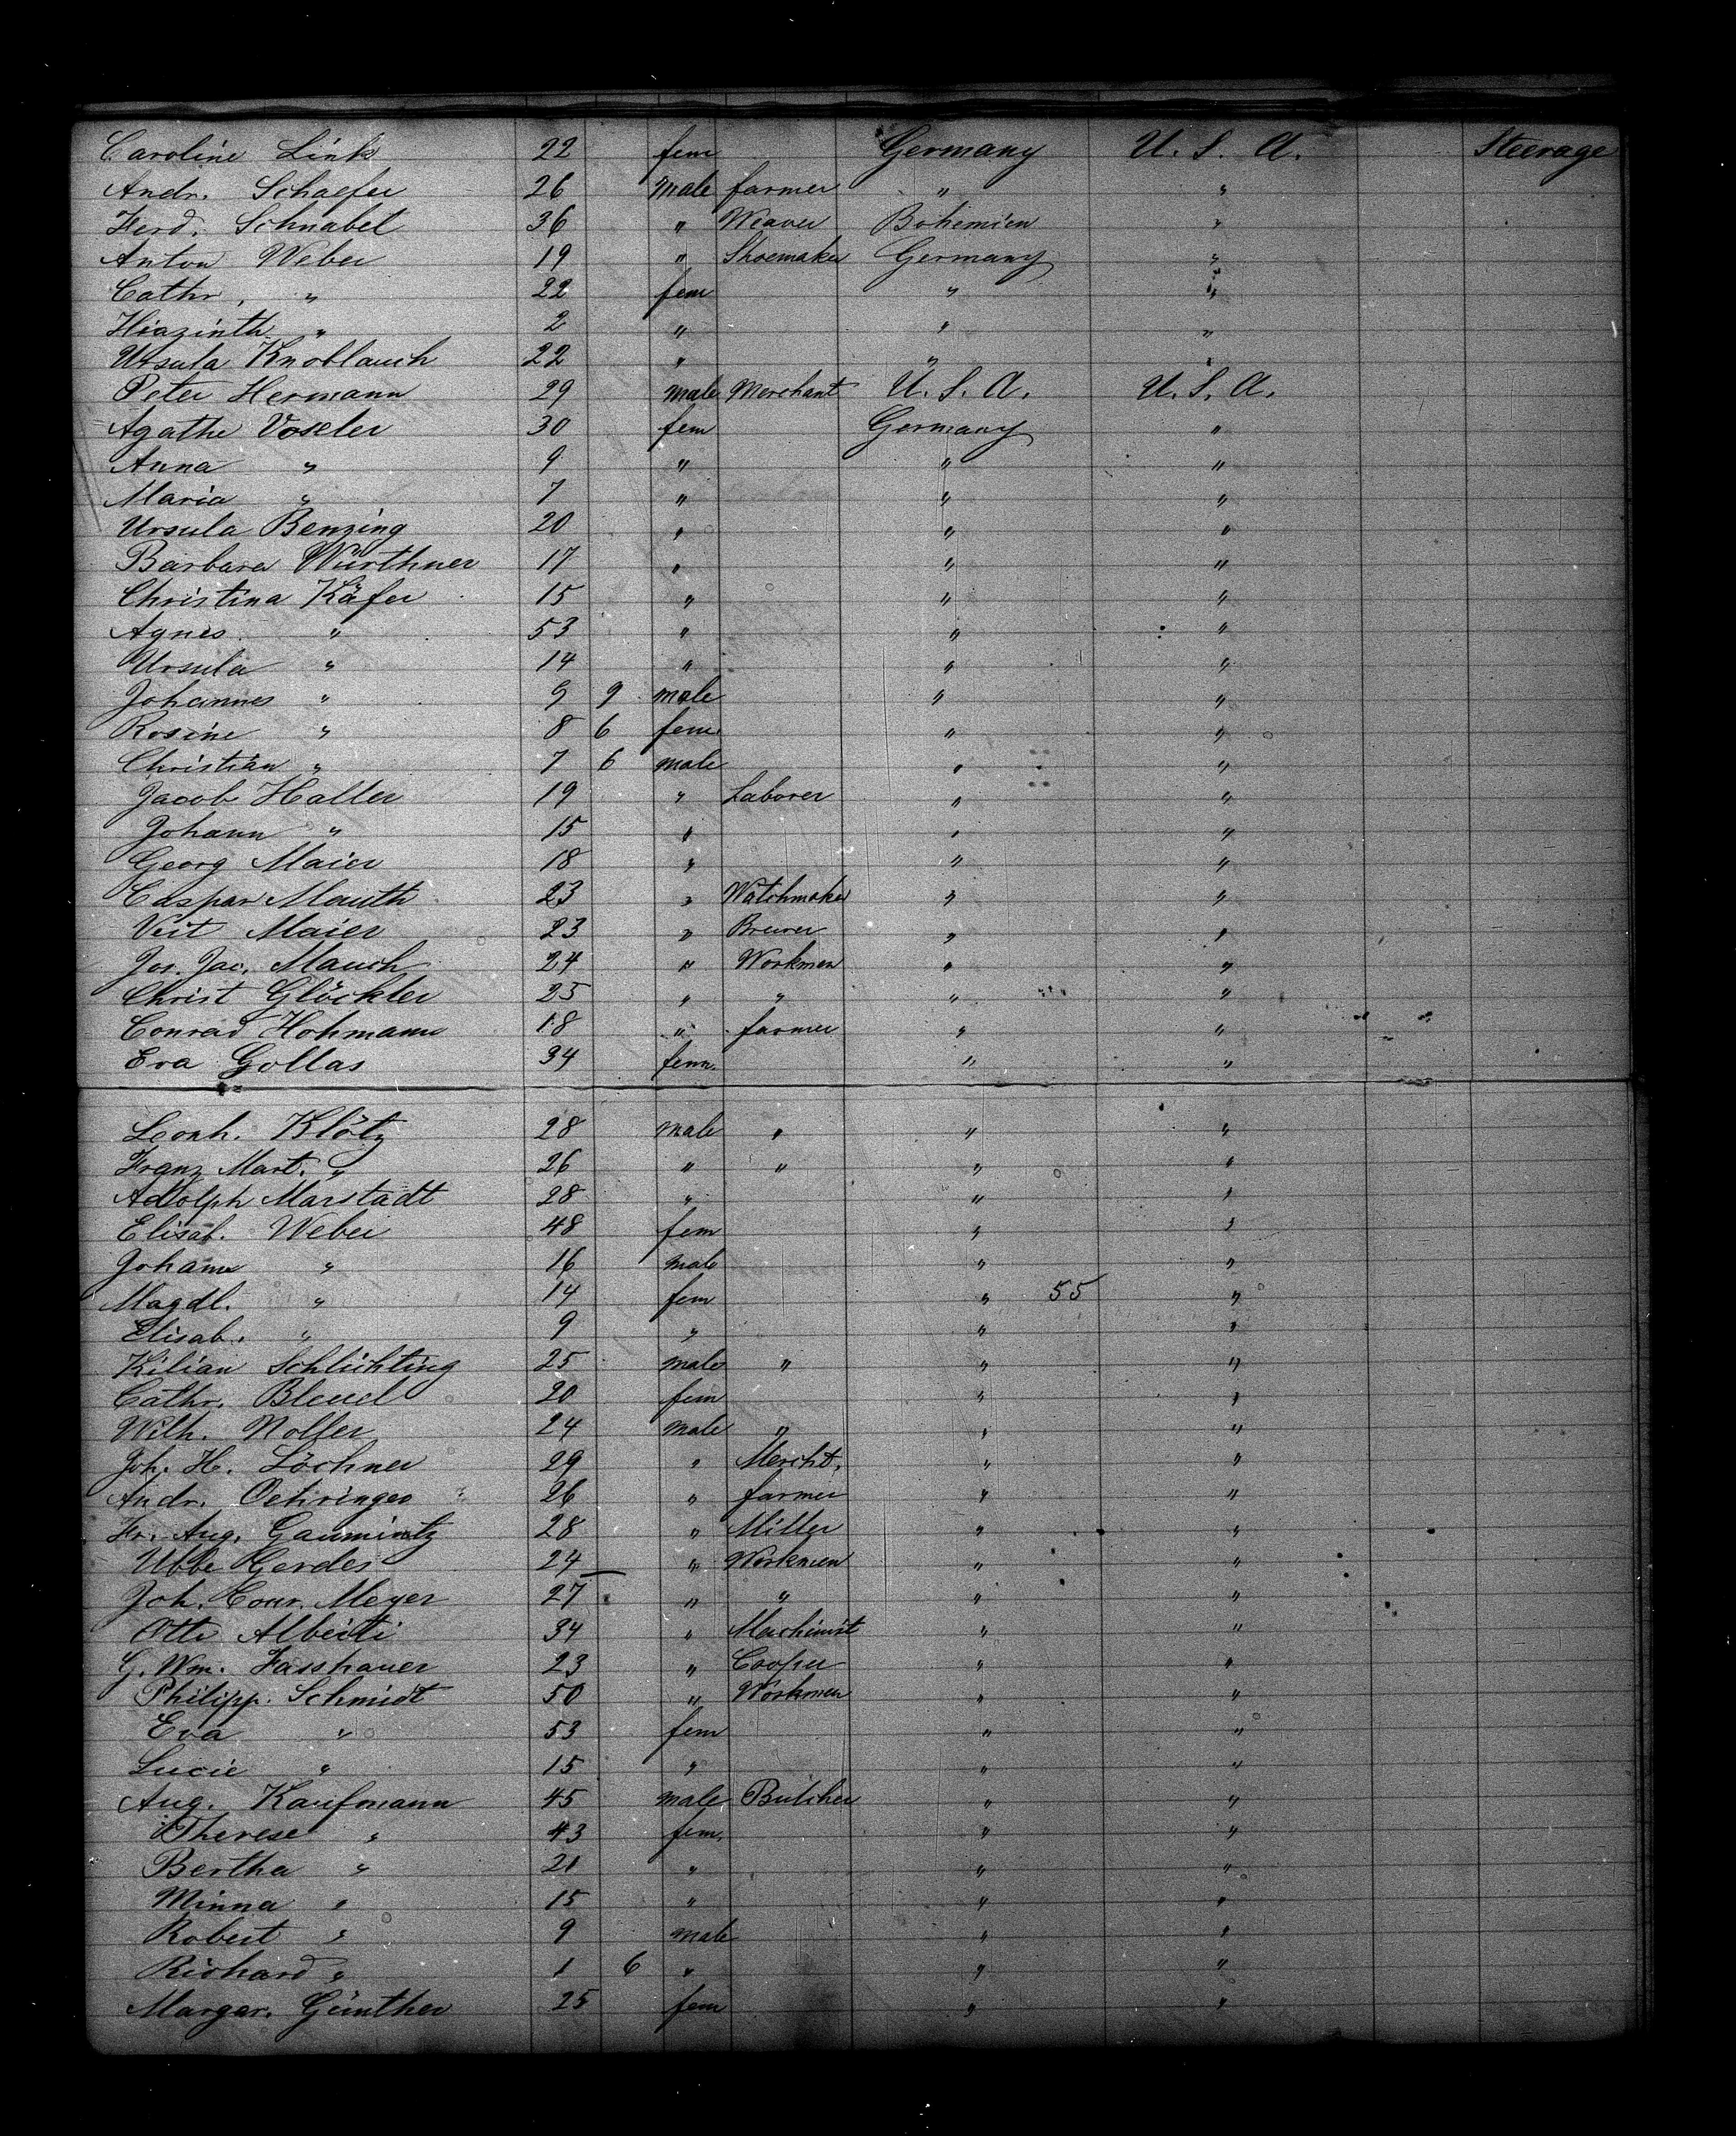 Caroline Link 22 fem Germany U. S. A. Steerage
Andr. Schaefer 26 male farmer " "
Ferd. Schnabel 36 " Weaver Bohemien "
Anton Weber 19 " Shoemaker Germany "
Cathr. " 22 fem " "
Hiazinth " 2 " " "
Ursula Knoblauch 22 " " "
Peter Hermann 29 male Merchant U. S. A. U. S. A.
Agathe Vosseler 30 fem Germany "
Anna " 9 " " "
Maria " 7 " " "
Ursula Benzing 20 " " "
Barbara Würthner 17 " " "
Christina Käfer 15 " " "
Agnes " 53 " " "
Ursula " 14 " " "
Johannes " 9 9 male " "
Rosine " 8 6 fem " "
Christian " 7 6 male " "
Jacob Haller 19 " Laborer " "
Johann " 15 " " "
Georg Maier 18 " " "
Caspar Mauth 23 " Watchmaker " "
Veit Maier 23 " Brewer " "
Jos. Jac. Mauch 24 " Workmen " "
Christ Glöckler 25 " " " "
Conrad Hohmann 18 " farmer " "
Eva Gollas 34 fem " "
Leonh. Klötz 28 male " " "
Franz Mart. " 26 " " " "
Adolph Marstadt 28 " " "
Elisab. Weber 48 fem " "
Johann " 16 male " "
Magdl. " 14 fem " 55 "
Elisab. " 9 " " "
Kilian Schlichting 25 male " " "
Cathr. Bleuel 20 fem " "
Wilh. Noller 24 male " " "
Joh. H. Löchner 29 " Mercht. " "
Andr. Oehringer 26 " farmer " "
Fr. Aug. Gaumintz 28 " Miller " "
Ubbe Gerdes 24 " Workmen " "
Joh. Conr. Meyer 27 " " " "
Otto Alberti 34 " Machinist " "
G. Wm. Fasshauer 23 " Cooper " "
Philipp. Schmidt 50 " Workmen " "
Eva " 53 fem " "
Lucie " 15 " " "
Aug. Kaufmann 45 male Butcher " "
Therese " 43 fem. " "
Bertha " 21 " " "
Minna " 15 " " "
Robert " 9 male " "
Richard " 1 6 " " "
Margar. Günther 25 fem " "